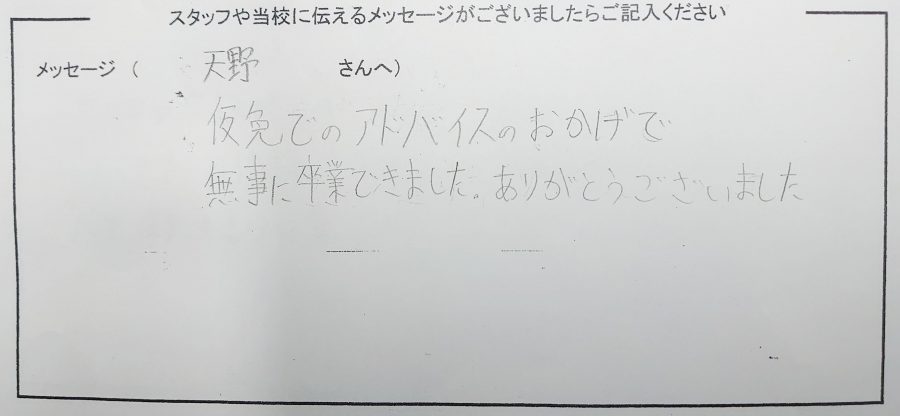 スタッフや当校に伝えるメッセージがございましたらご記入ください
メッセージ ( 天野 さんへ)
仮免でのアドバイスのおかげで
無事に卒業できました。ありがとうございました